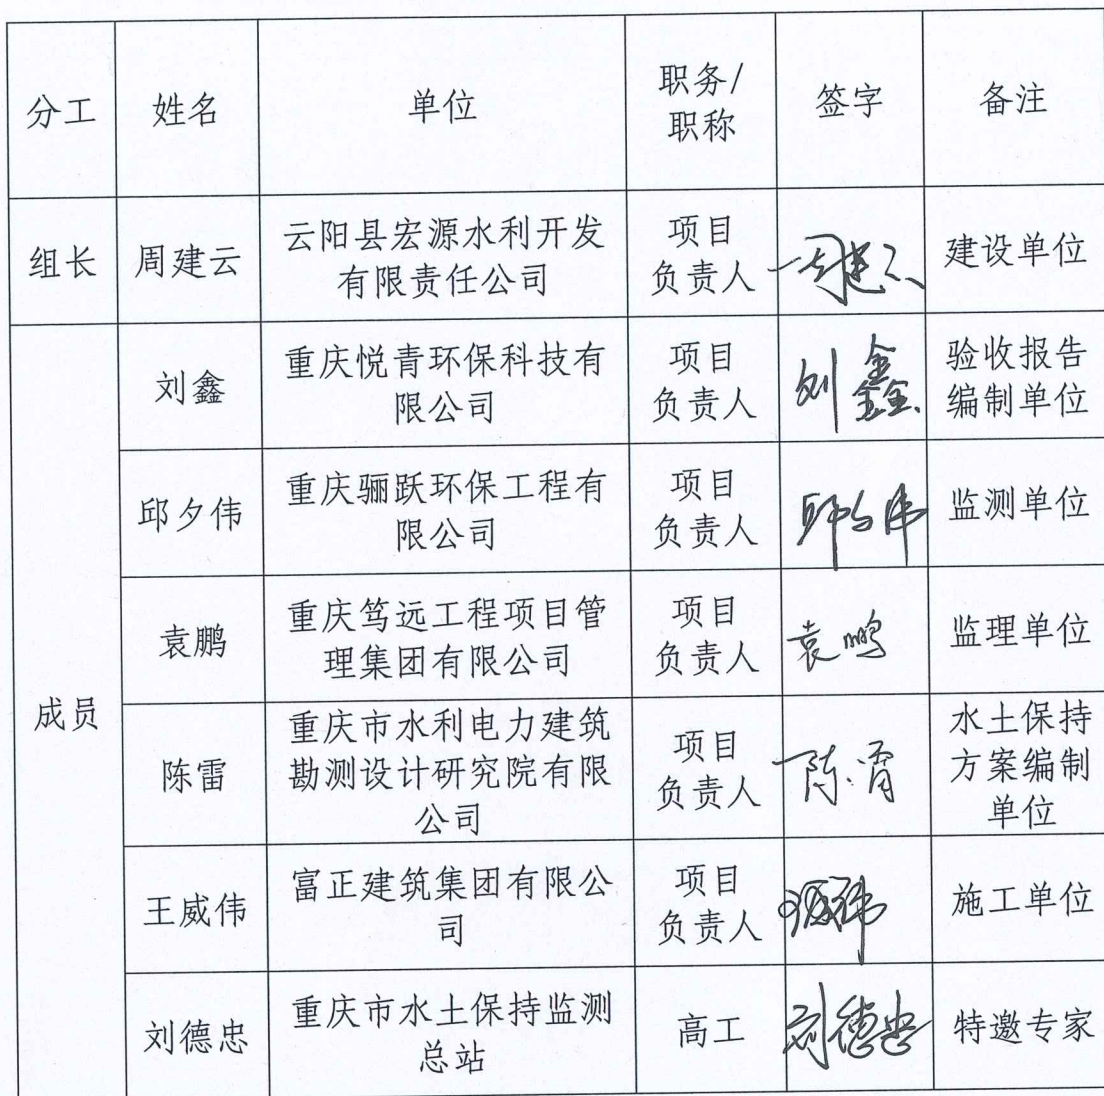 分工 姓名 单位 职务/职称 签字 备注
组长 周建云 云阳县宏源水利开发有限责任公司 项目负责人 周建云 建设单位
成员 刘鑫 重庆悦青环保科技有限公司 项目负责人 刘鑫 验收报告编制单位
邱夕伟 重庆骊跃环保工程有限公司 项目负责人 邱夕伟 监测单位
袁鹏 重庆笃远工程项目管理集团有限公司 项目负责人 袁鹏 监理单位
陈雷 重庆市水利电力建筑勘测设计研究院有限公司 项目负责人 陈雷 水土保持方案编制单位
王威伟 富正建筑集团有限公司 项目负责人 施工单位
刘德忠 重庆市水土保持监测总站 高工 刘德忠 特邀专家